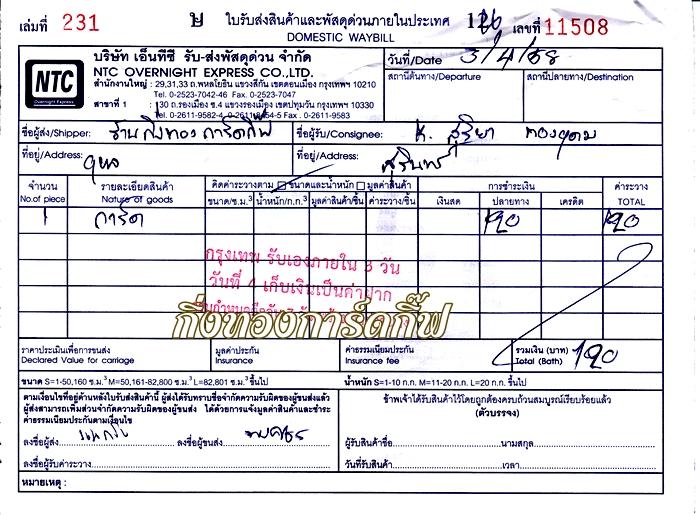 เล่มที่ 231
ข
ใบรับส่งสินค้าและพัสดุด่วนภายในประเทศ
DOMESTIC WAYBILL
เลขที่ 11508
NTC
Overnight Express
บริษัท เอ็นทีซี รับ-ส่งพัสดุด่วน จำกัด
NTC OVERNIGHT EXPRESS CO.,LTD.
สำนักงานใหญ่ : 29,31,33 ถ.พหลโยธิน แขวงสีกัน เขตดอนเมือง กรุงเทพฯ 10210
Tel. 0-2523-7042-46 Fax. 0-2523-7047
สาขาที่ 1 : 130 ถ.รองเมือง ซ.4 แขวงรองเมือง เขตปทุมวัน กรุงเทพฯ 10330
Tel. 0-2611-9582-4, Fax : 0-2611-9583
วันที่/Date 3/4/58
สถานีต้นทาง/Departure
สถานีปลายทาง/Destination
ชื่อผู้ส่ง/Shipper: ร้านกิ่งทองการ์ดกิ๊ฟ
ชื่อผู้รับ/Consignee: K. สุริยา
ที่อยู่/Address:
ที่อยู่/Address: สุรินทร์
จำนวน No.of piece
รายละเอียดสินค้า Nature of goods
คิดค่าระวางตาม ขนาดและน้ำหนัก มูลค่าสินค้า
ขนาด/ซ.ม.³ น้ำหนัก/ก.ก.³ มูลค่าสินค้า/ชิ้น ค่าระวาง/ชิ้น
การชำระเงิน
เงินสด ปลายทาง เครดิต
ค่าระวาง TOTAL
1 การ์ด 190 190
กรุงเทพ รับเองภายใน 3 วัน
วันที่ 4 เก็บเงินเป็นค่าฝาก
กิ่งทองการ์ดกิ๊ฟ
ราคาประเมินเพื่อการขนส่ง
Declared Value for carriage
มูลค่าประกัน
Insurance
ค่าธรรมเนียมประกัน
Insurance fee
รวมเงิน (บาท)
Total (Bath) 190
ขนาด S=1-50,160 ซ.ม.³ M=50,161-82,800 ซ.ม.³ L=82,801 ซ.ม.³ ขึ้นไป
น้ำหนัก S=1-10 ก.ก. M=11-20 ก.ก. L=20 ก.ก. ขึ้นไป
ตามเงื่อนไขที่อยู่ด้านหลังใบรับส่งสินค้านี้ ผู้ส่งได้รับทราบข้อจำกัดความรับผิดของผู้ขนส่งแล้ว
ผู้ส่งสามารถเพิ่มส่วนจำกัดความรับผิดของผู้ขนส่ง ได้ด้วยการแจ้งมูลค่าสินค้าและชำระ
ค่าธรรมเนียมประกันตามเงื่อนไข
ลงชื่อผู้ส่ง
ลงชื่อผู้ขนส่ง
ลงชื่อผู้รับค่าระวาง
ข้าพเจ้าได้รับสินค้าไว้โดยถูกต้องครบถ้วนสมบูรณ์เรียบร้อยแล้ว
(ตัวบรรจง)
ผู้รับสินค้าชื่อ นามสกุล
วันที่รับสินค้า เวลา
หมายเหตุ :